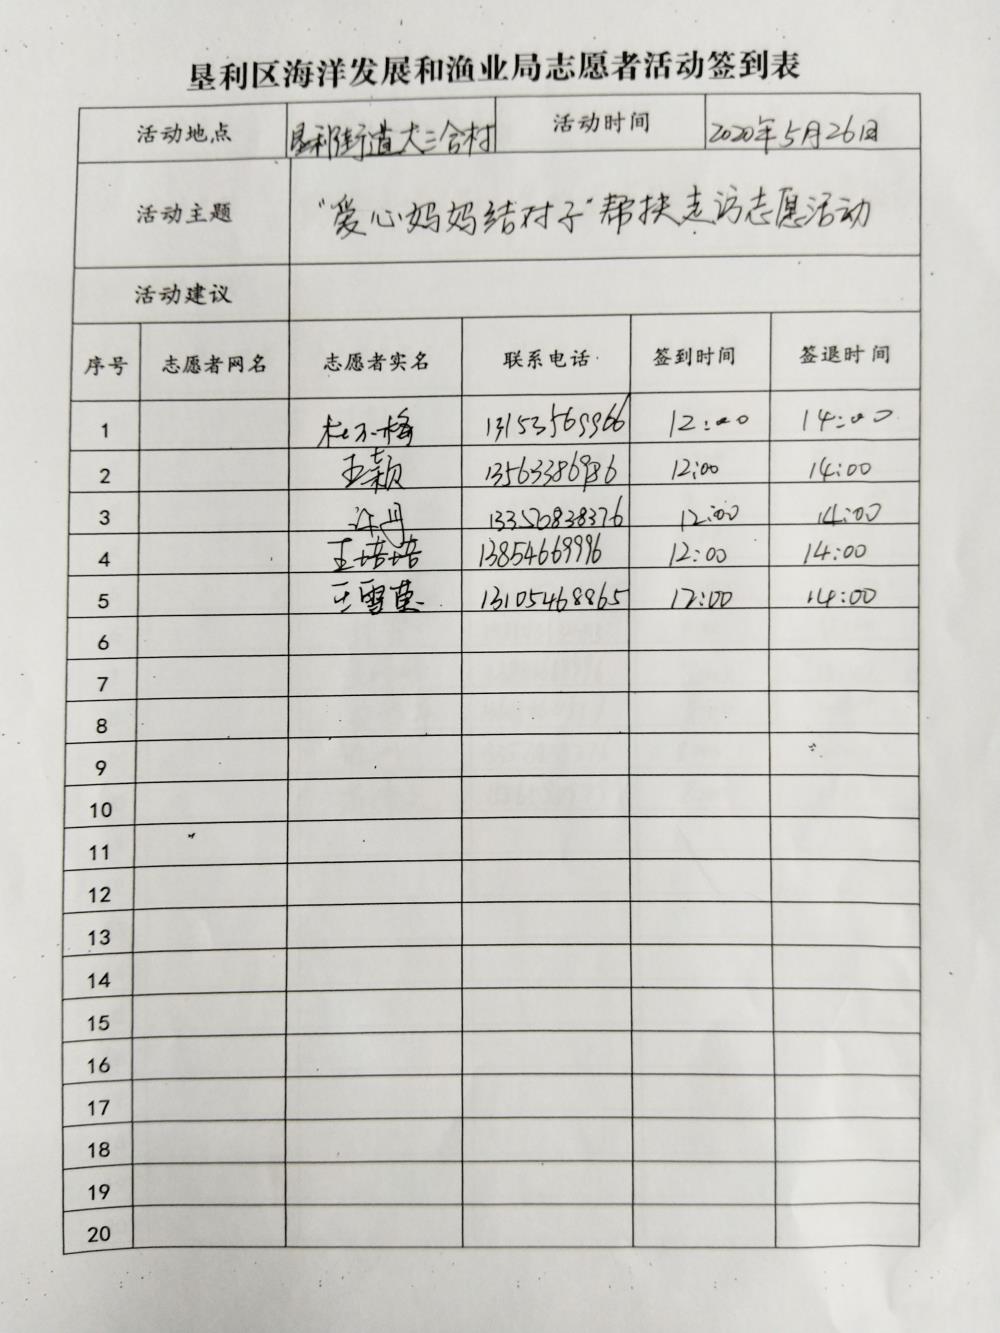 垦利区海洋发展和渔业局志愿者活动签到表
活动地点 垦利街道大三合村 活动时间 2020年5月26日
活动主题 “爱心妈妈结对子”帮扶走访志愿活动
活动建议
序号 志愿者网名 志愿者实名 联系电话 签到时间 签退时间
1 13153569966 12:00 14:00
2 王颖 13563386986 12:00 14:00
3 许丹 13356838376 12:00 14:00
4 王培培 13854669996 12:00 14:00
5 王雪莲 13105468865 12:00 14:00
6
7
8
9
10
11
12
13
14
15
16
17
18
19
20